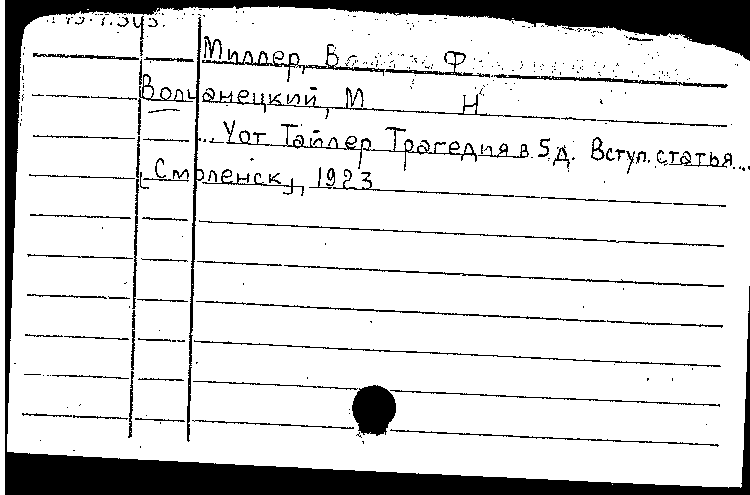 Миллер, В Ф
Волчанецкий, М Н
... Уот Тайлер Трагедия в 5 д. Вступ. статья...
[Смоленск], 1923